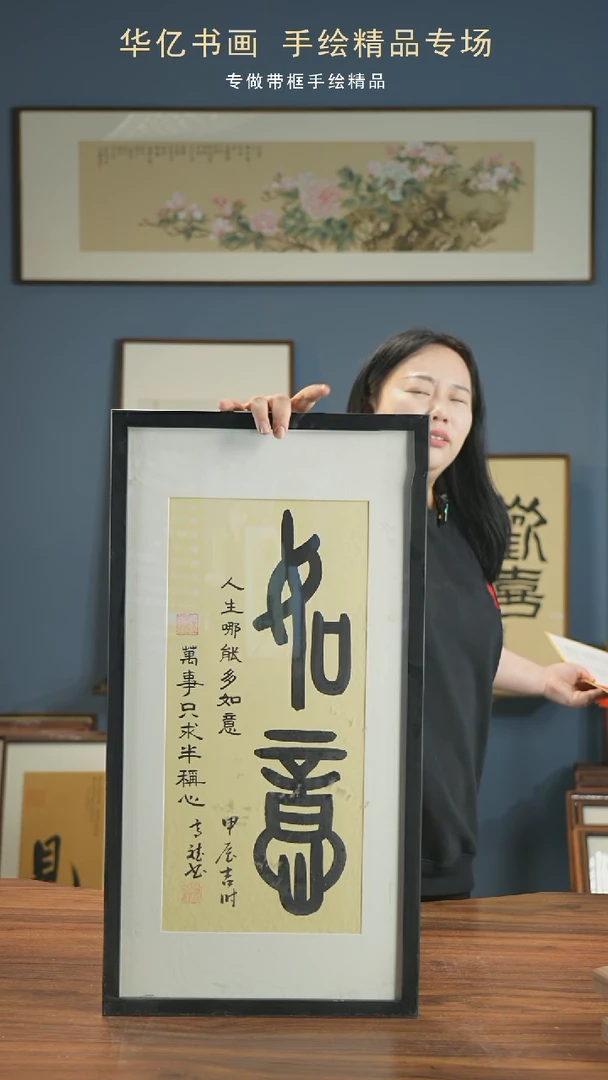 华亿书画 手绘精品专场
专做带框手绘精品
如意
人生哪能多如意
萬事只求半稱心
甲辰吉时
歡喜